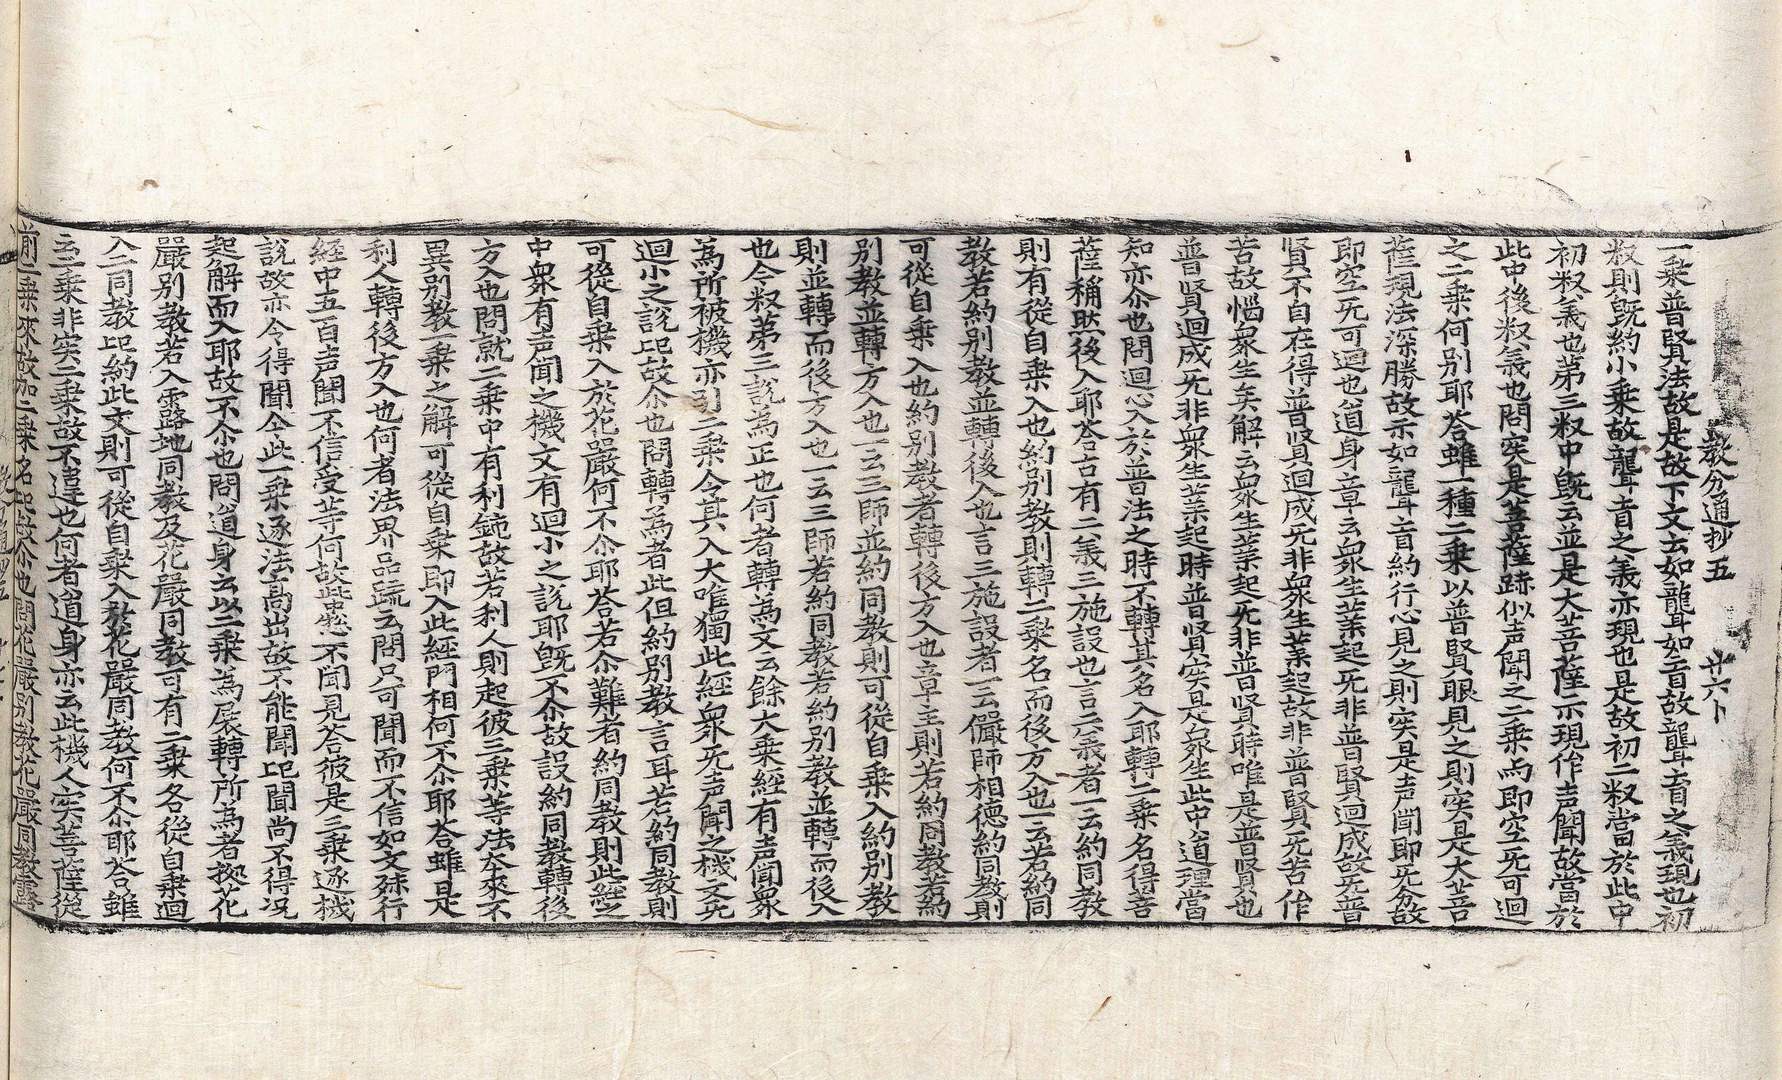 教分通抄五 廿六卜
一乗普賢法故是故下文云如聾如盲故聾盲之義現也初
釈則旣約小乗故聾盲之義亦現也是故初二釈當於此中
初釈義也第三釈中旣云並是大菩薩示現作声聞故當於
此中後釈義也問实是菩薩跡似声聞之二乗而即空旡可迴
之二乗何别耶荅雖一種二乗以普賢眼見之則实是大菩
薩現法深勝故示如聾盲約行心見之則实是声聞即旡分故
即空旡可迴也道身章云衆生業起旡非普賢迴成故旡普
賢不自在得普賢迴成旡非衆生業起故非普賢旡苦作
苦故惱衆生矣解云衆生業起旡非普賢時唯是普賢也
普賢迴成旡非衆生業起時普賢实是衆生此中道理當
知亦尒也問迴心入於普法之時不轉其名入耶轉二乗名得菩
薩稱然後入耶荅古有二義三施設也言二義者一云約同教
則有從自乗入也約别教則轉二乗名而後方入也一云若約同
教若約别教並轉後入也言三施設者一云儼師相德約同教則
可從自乗入也約别教者轉後方入也章主則若約同教若約
别教並轉方入也一云三師並約同教則可從自乗入約别教
則並轉而後方入也一云三師若約同教若約别教並轉而後入
也今釈第三說為正也何者轉為文云餘大乗經有声聞衆
為所被機亦引二乗令其入大唯獨此經衆旡声聞之機文旡
迴小之說𪜈故尒也問轉為者此但約别教言耳若約同教則
可從自乗入於花嚴何不尒耶荅若尒難者約同教則此經之
中衆有声聞之機文有迴小之說耶旣不尒故設約同教轉後
方入也問就二乗中有利鈍故若利人則起彼三乗等法夲來不
異别教一乗之解可從自乗即入此經門相何不尒耶荅雖是
利人轉後方入也何者法界品疏云問只可聞而不信如文殊行
經中五百声聞不信受等何故此悉不聞見荅彼是三乗逐機
說故亦令得聞仝此一乗逐法高出故不能聞𪜈聞尚不得况
起解而入耶故不尒也問道身云以二乗為展轉所為者擬花
嚴别教若入露地同教及花嚴同教可有二乗名從自乗迴
入二同教𪜈約此文則可從自乗入於花嚴同教何不尒耶荅雖
云二乗非实二乗故不違也何者道身亦云此機人实菩薩從
前二乗來故加二乗名𪜈故尒也問花嚴别教花嚴同教露